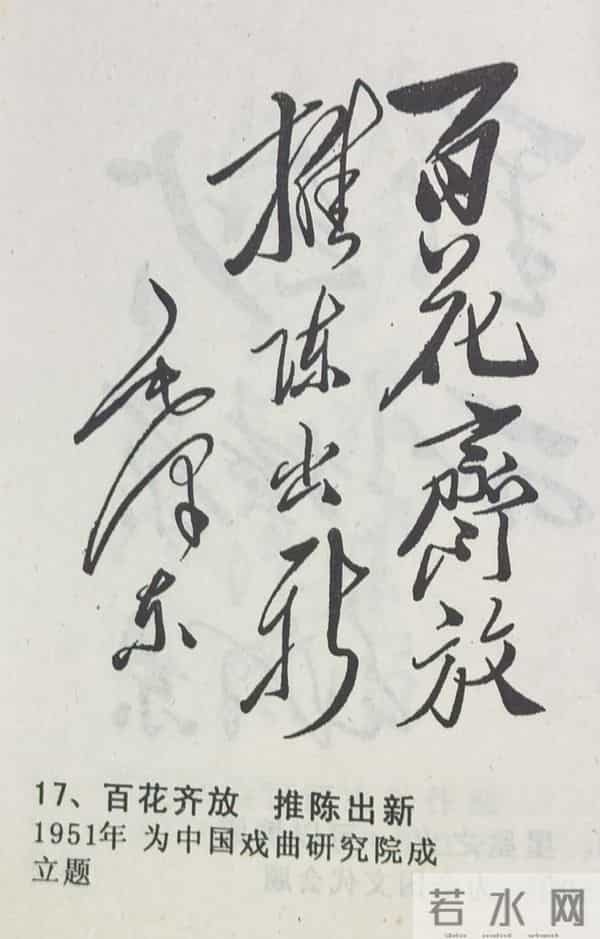 百花齊放
推陈出新
毛泽东
17、百花齐放 推陈出新
1951年 为中国戏曲研究院成
立题
若水网